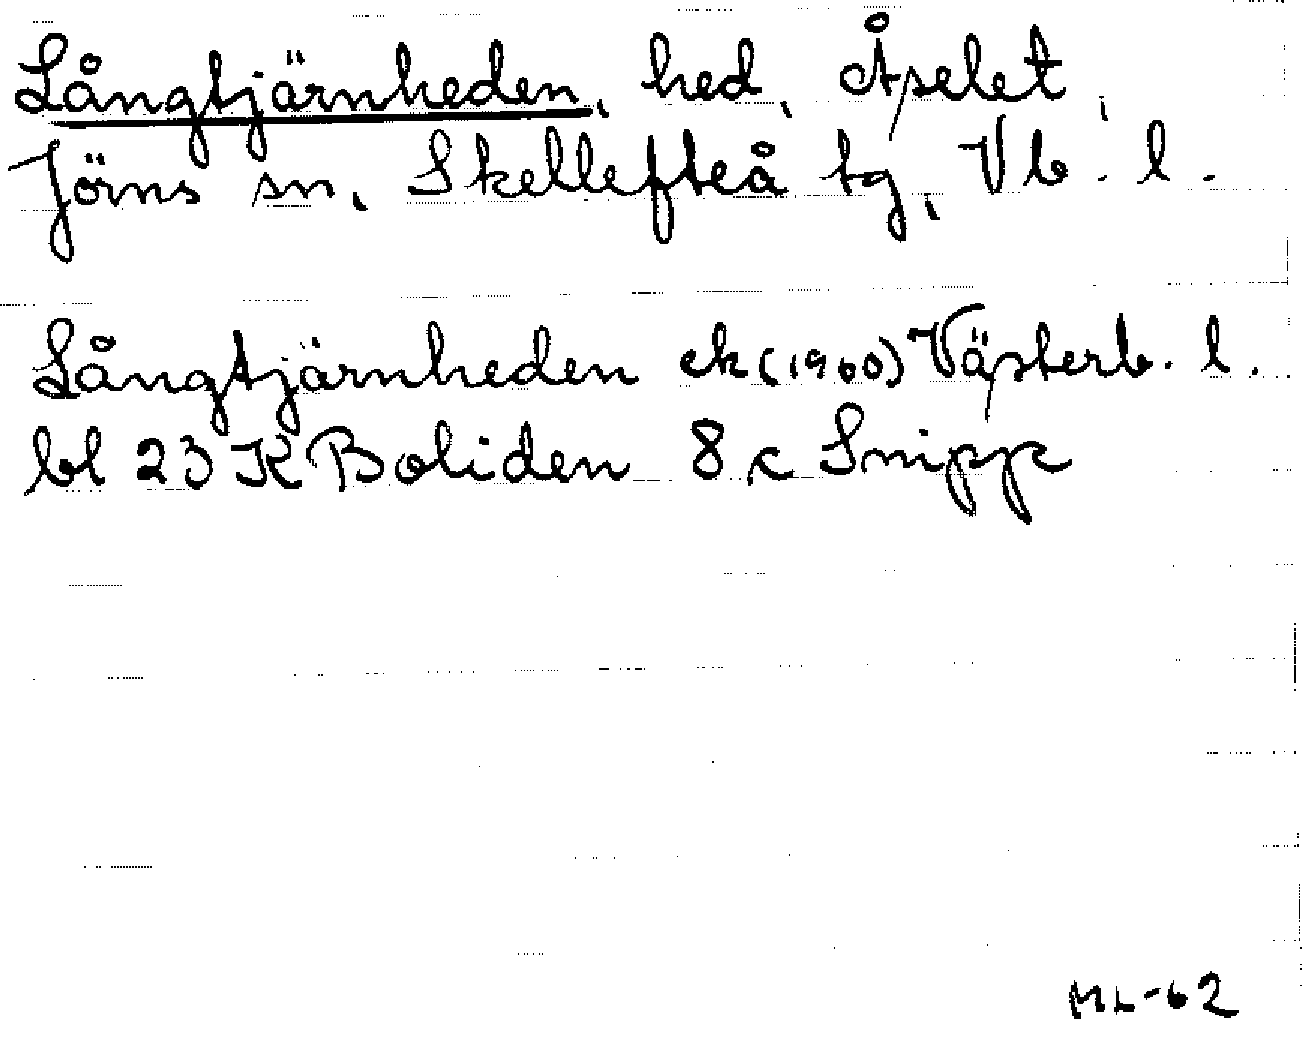 Långtjärnheden, hed, Åselet,
Jörns sn, Skellefteå tg, Vb. l.
Långtjärnheden ek (1960) Västerb. l.
bl 23 K Boliden 8 c Snipp
ML-62